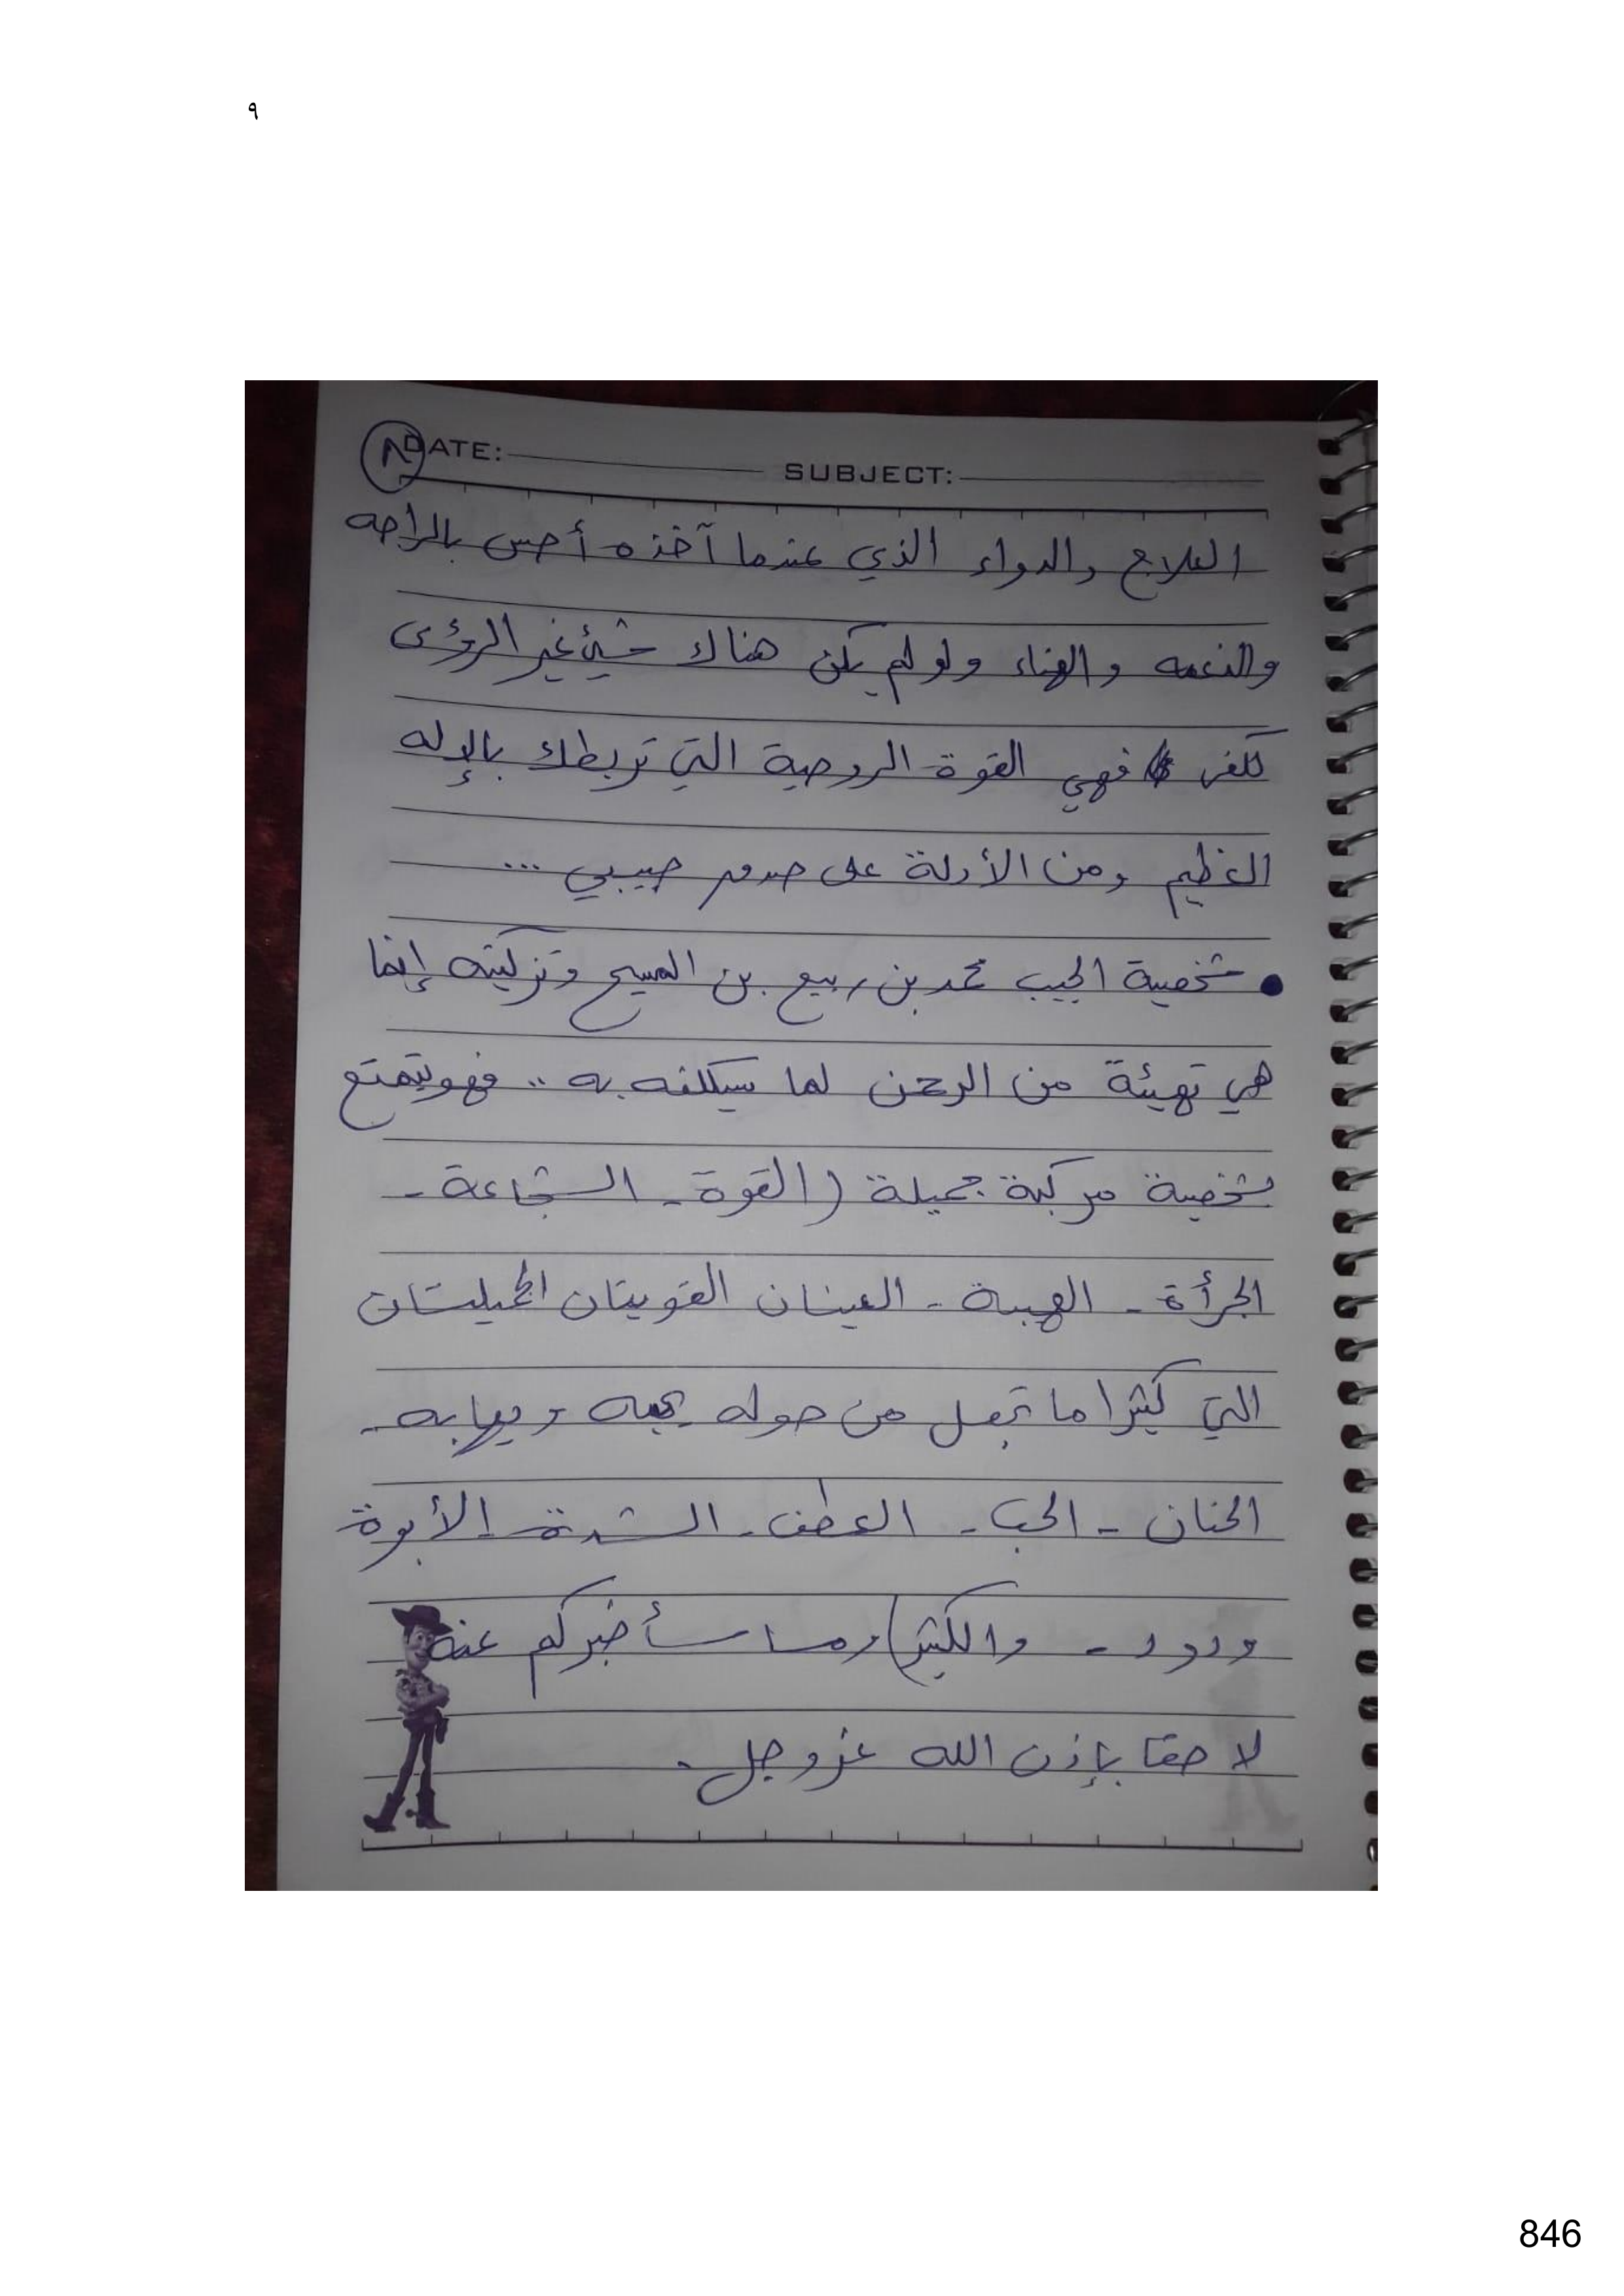 ٩
DATE: SUBJECT:
٨
العلاج والدواء الذي عندما آخذه أحس بالراحه
والنعمه والهناء ولو لم يكن هناك شيئ غير الرؤى
لكفى فهي القوة الروحية التي تربطك بالإله
العظيم ومن الأدلة على صدق حبيبي ...
• شخصية الحبيب محمد بن ربيع بن المسيح وتزكيته إنما
هي تهيئة من الرحمن لما سيكلفه به .. فهو يتمتع
بشخصية مركبة جميلة (القوة - الشجاعة -
الجرأة - الهيبة - العينان القويتان الجميلتان
التي كثيرا ما تجعل من حوله يحبه ويهابه -
الحنان - الحب - العطف - الشدة - الأبوة
ودود - والكثير) مما سأخبركم عنه
لاحقا بإذن الله عز وجل .
846